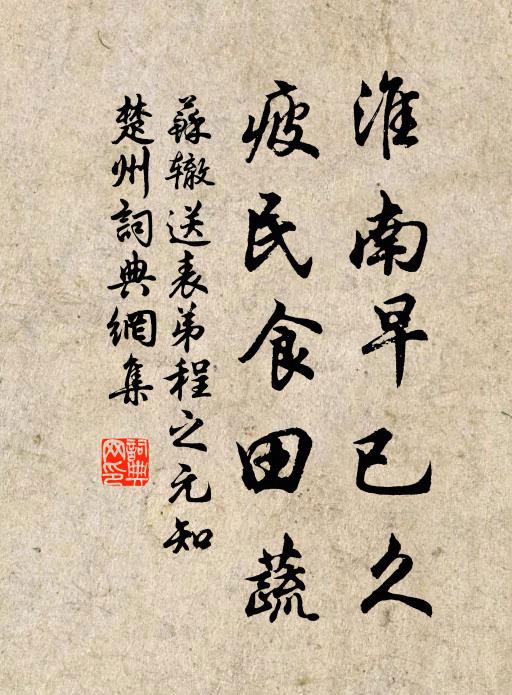 淮南早已久
疲民食田蔬
蘇辙送表弟程之元知
楚州詞典網集
詞典网印